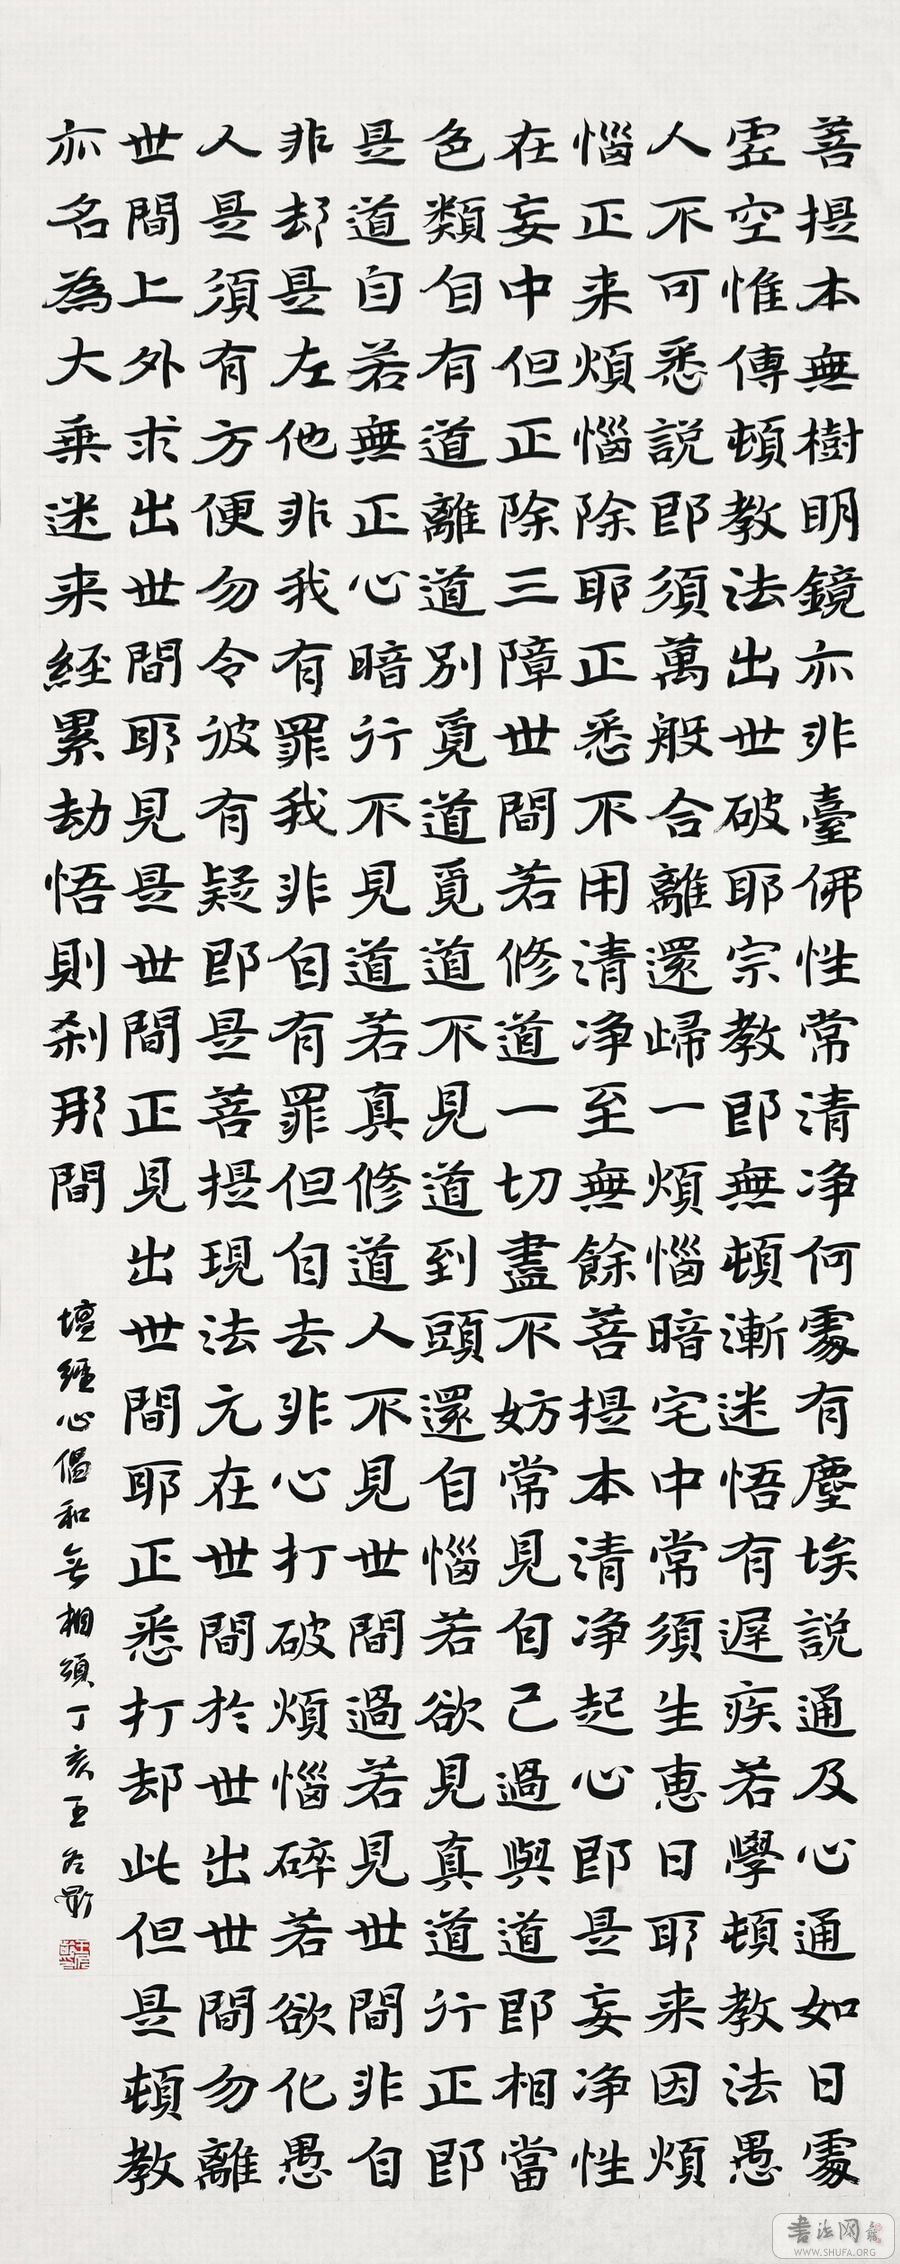 菩提本無樹明鏡亦非臺佛性常清净何處有塵埃說通及心通如日處
虛空惟傳頓教法出世破耶宗教即無頓漸迷悟有遲疾若學頓教法愚
人不可悉說即須萬般合離還歸一煩惱暗宅中常須生惠日耶来因煩
惱正来煩惱除耶正悉不用清净至無餘菩提本清净起心即是妄净性
在妄中但正除三障世間若修道一切盡不妨常見自己過與道即相當
色類自有道離道別覓道覓道不見道到頭還自惱若欲見真道行正即
是道自若無正心暗行不見道若真修道人不見世間過若見世間非自
非却是左他非我有罪我非自有罪但自去非心打破煩惱碎若欲化愚
人是須有方便勿令彼有疑即是菩提現法元在世間於世出世間勿離
世間上外求出世間耶見是世間正見出世間耶正悉打却此但是頓教
亦名為大乘迷来經累劫悟則刹那間
壇經心偈和無相頌丁亥王冬齡
書法网
WWW.SHUFA.ORG